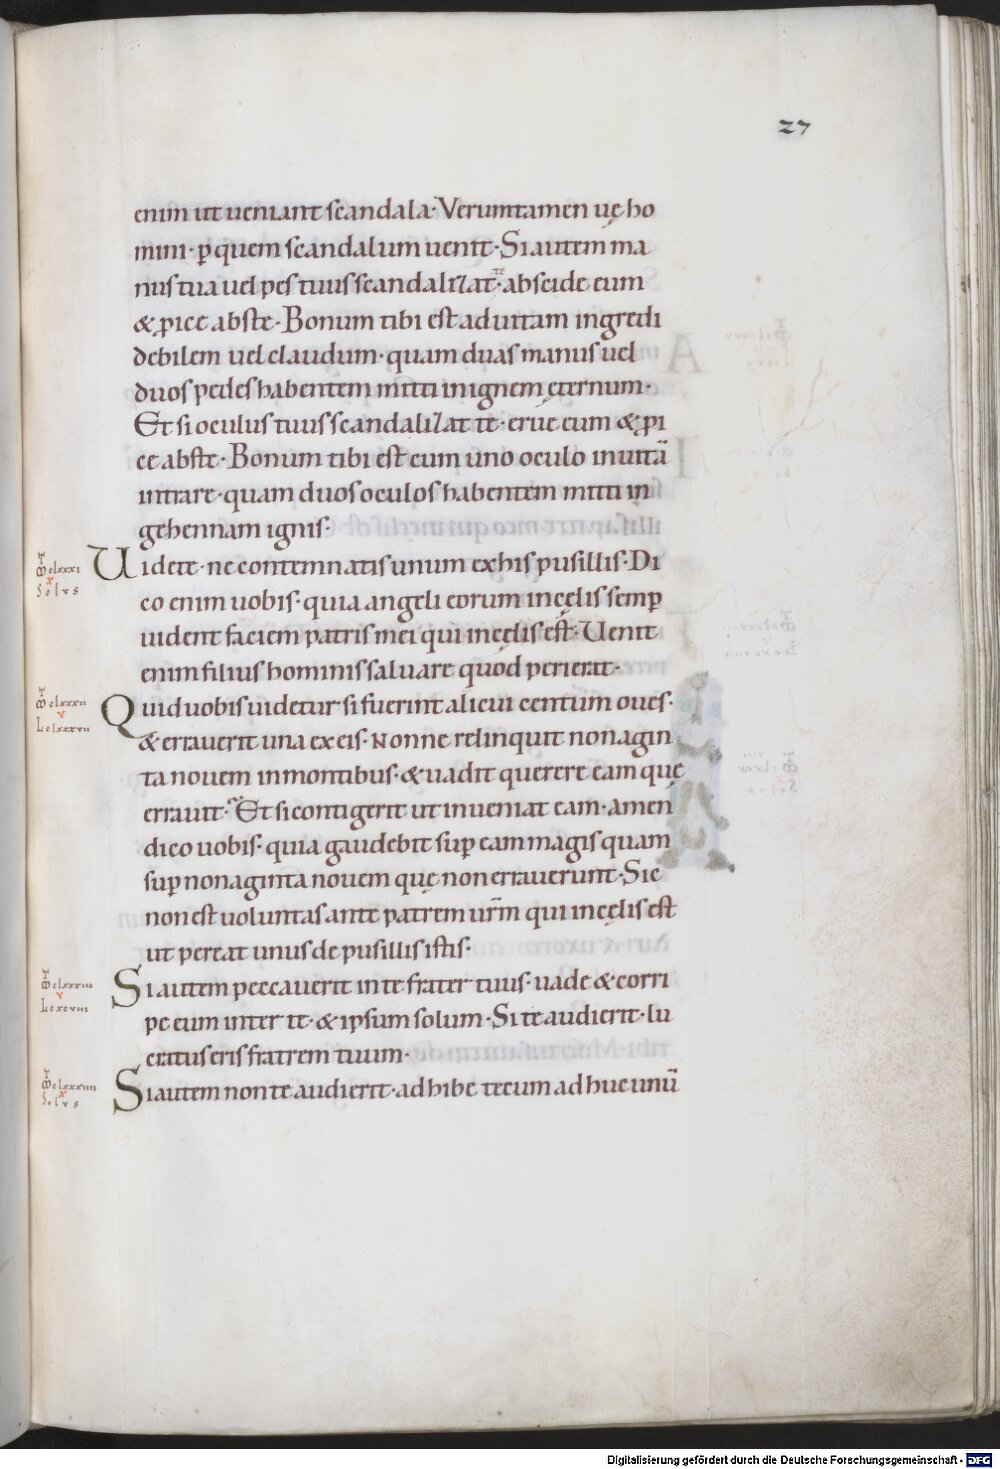 27
enim ut ueniant scandala· Veruntamen uę ho
mini· ꝑ quem scandalum uenit· Si autem ma
nus tua uel pes tuus scandalizat te· abscide eum
& ꝓice abs te· Bonum tibi est ad uitam ingredi
debilem uel claudum· quam duas manus uel
duos pedes habentem mitti in ignem ęternum·
Et si oculus tuus scandalizat te· erue eum & ꝓi
ce abs te· Bonum tibi est cum uno oculo in uitā
intrare· quam duos oculos habentem mitti in
gehennam ignis·
Uidete· ne contemnatis unum ex his pusillis· Di
co enim uobis· quia angeli eorum in cęlis semꝑ
uident faciem patris mei qui in cęlis est· Uenit
enim filius hominis saluare quod perierat·
Quid uobis uidetur si fuerint alicui centum oues·
& errauerit una ex eis· Nonne relinquit nonagin
ta nouem in montibus· & uadit querere eam quę
errauit· Et si contigerit ut inueniat eam· amen
dico uobis· quia gaudebit suꝑ eam magis quam
suꝑ nonaginta nouem quę non errauerunt· Sic
non est uoluntas ante patrem ur̄m qui in cęlis est
ut pereat unus de pusillis istis·
Si autem peccauerit in te frater tuus· uade & corri
pe eum inter te· & ipsum solum· Si te audierit· lu
cratus eris fratrem tuum·
Si autem non te audierit· adhibe tecum adhuc unū
clxxxi
x
Solus
clxxxii
v
L clxxxvii
clxxxiii
v
L cxcviii
clxxxiiii
x
Solus
Digitalisierung gefördert durch die Deutsche Forschungsgemeinschaft - DFG